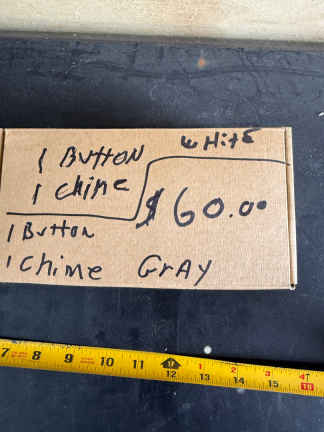 1 Button WHitE
1 Chime
$60.00
1 Button
1 Chime GrAy
7 8 9 10 11 12 13 14 15 16
1 2 3 4